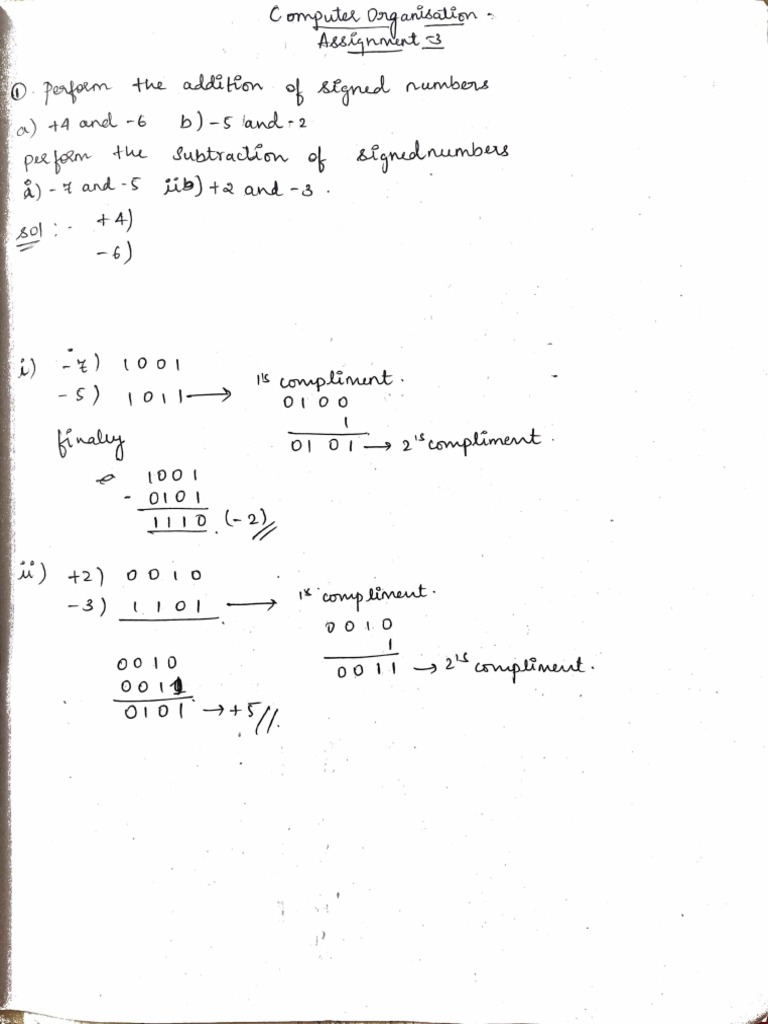 Computer Organisation.
Assignment-3
① Perform the addition of signed numbers
a) +4 and -6 b) -5 and -2
perform the subtraction of signed numbers
i) -7 and -5 iib) +2 and -3.
sol :- +4)
-6)
i) -7) 1001
-5) 1011 → 1's compliment.
0100
1
0101 → 2's compliment.
finaley
1001
- 0101
1110 (-2)//
ii) +2) 0010
-3) 1101 → 1's compliment.
0010
1
0011 → 2's compliment.
0010
0011
0101 → +5//.